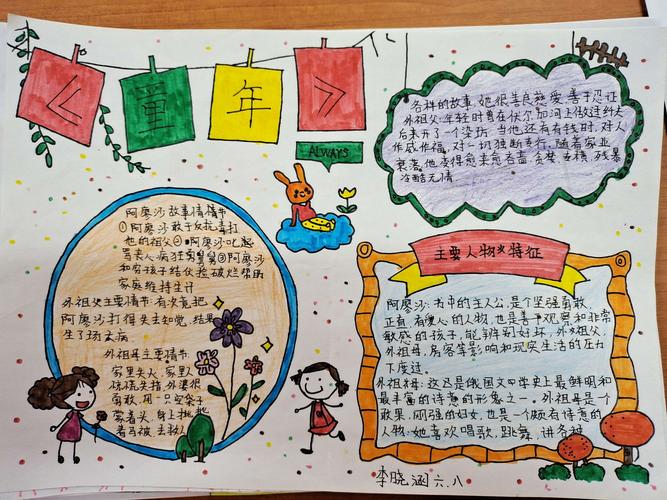 《童年》
ALWAYS
阿廖沙故事情情节
①阿廖沙敢于反抗毒打
他的祖父②阿廖沙吃起
③阿廖沙
和穷孩子结伙捡破烂帮助
家庭维持生计
外祖父主要情节:有次竟把
阿廖沙打得失去知觉,结果
生了场大病
外祖母主要情节:
家里失火,家里人
惊慌失措,外婆很
勇敢,用一只空袋子
蒙着头,身上披
着马被,去救人
各样的故事,她很善良慈爱善于忍让
外祖父:年轻时曾在伏尔加河上做过纤夫
后来开了一个染坊,当他还有有钱时,对人
作威作福,对一切独断专行,随着家业
衰落,他变得愈来愈吝啬,贪婪,专横,残暴
冷酷无情
主要人物及特征
阿廖沙:书中的主人公,是个坚强勇敢,
正直,有爱心的人物,也是善于观察和非常
敏感的孩子,能辨别好坏,外祖父,
外祖母,房客等影响和现实生活的压力
下度过。
外祖母:这是俄国文学史上最鲜明和
最丰富的诗意的形象之一。外祖母是个
果,刚强的妇女,也是一个颇有诗意的
人物:她喜欢唱歌,跳舞,讲各种
李晓涵六.八